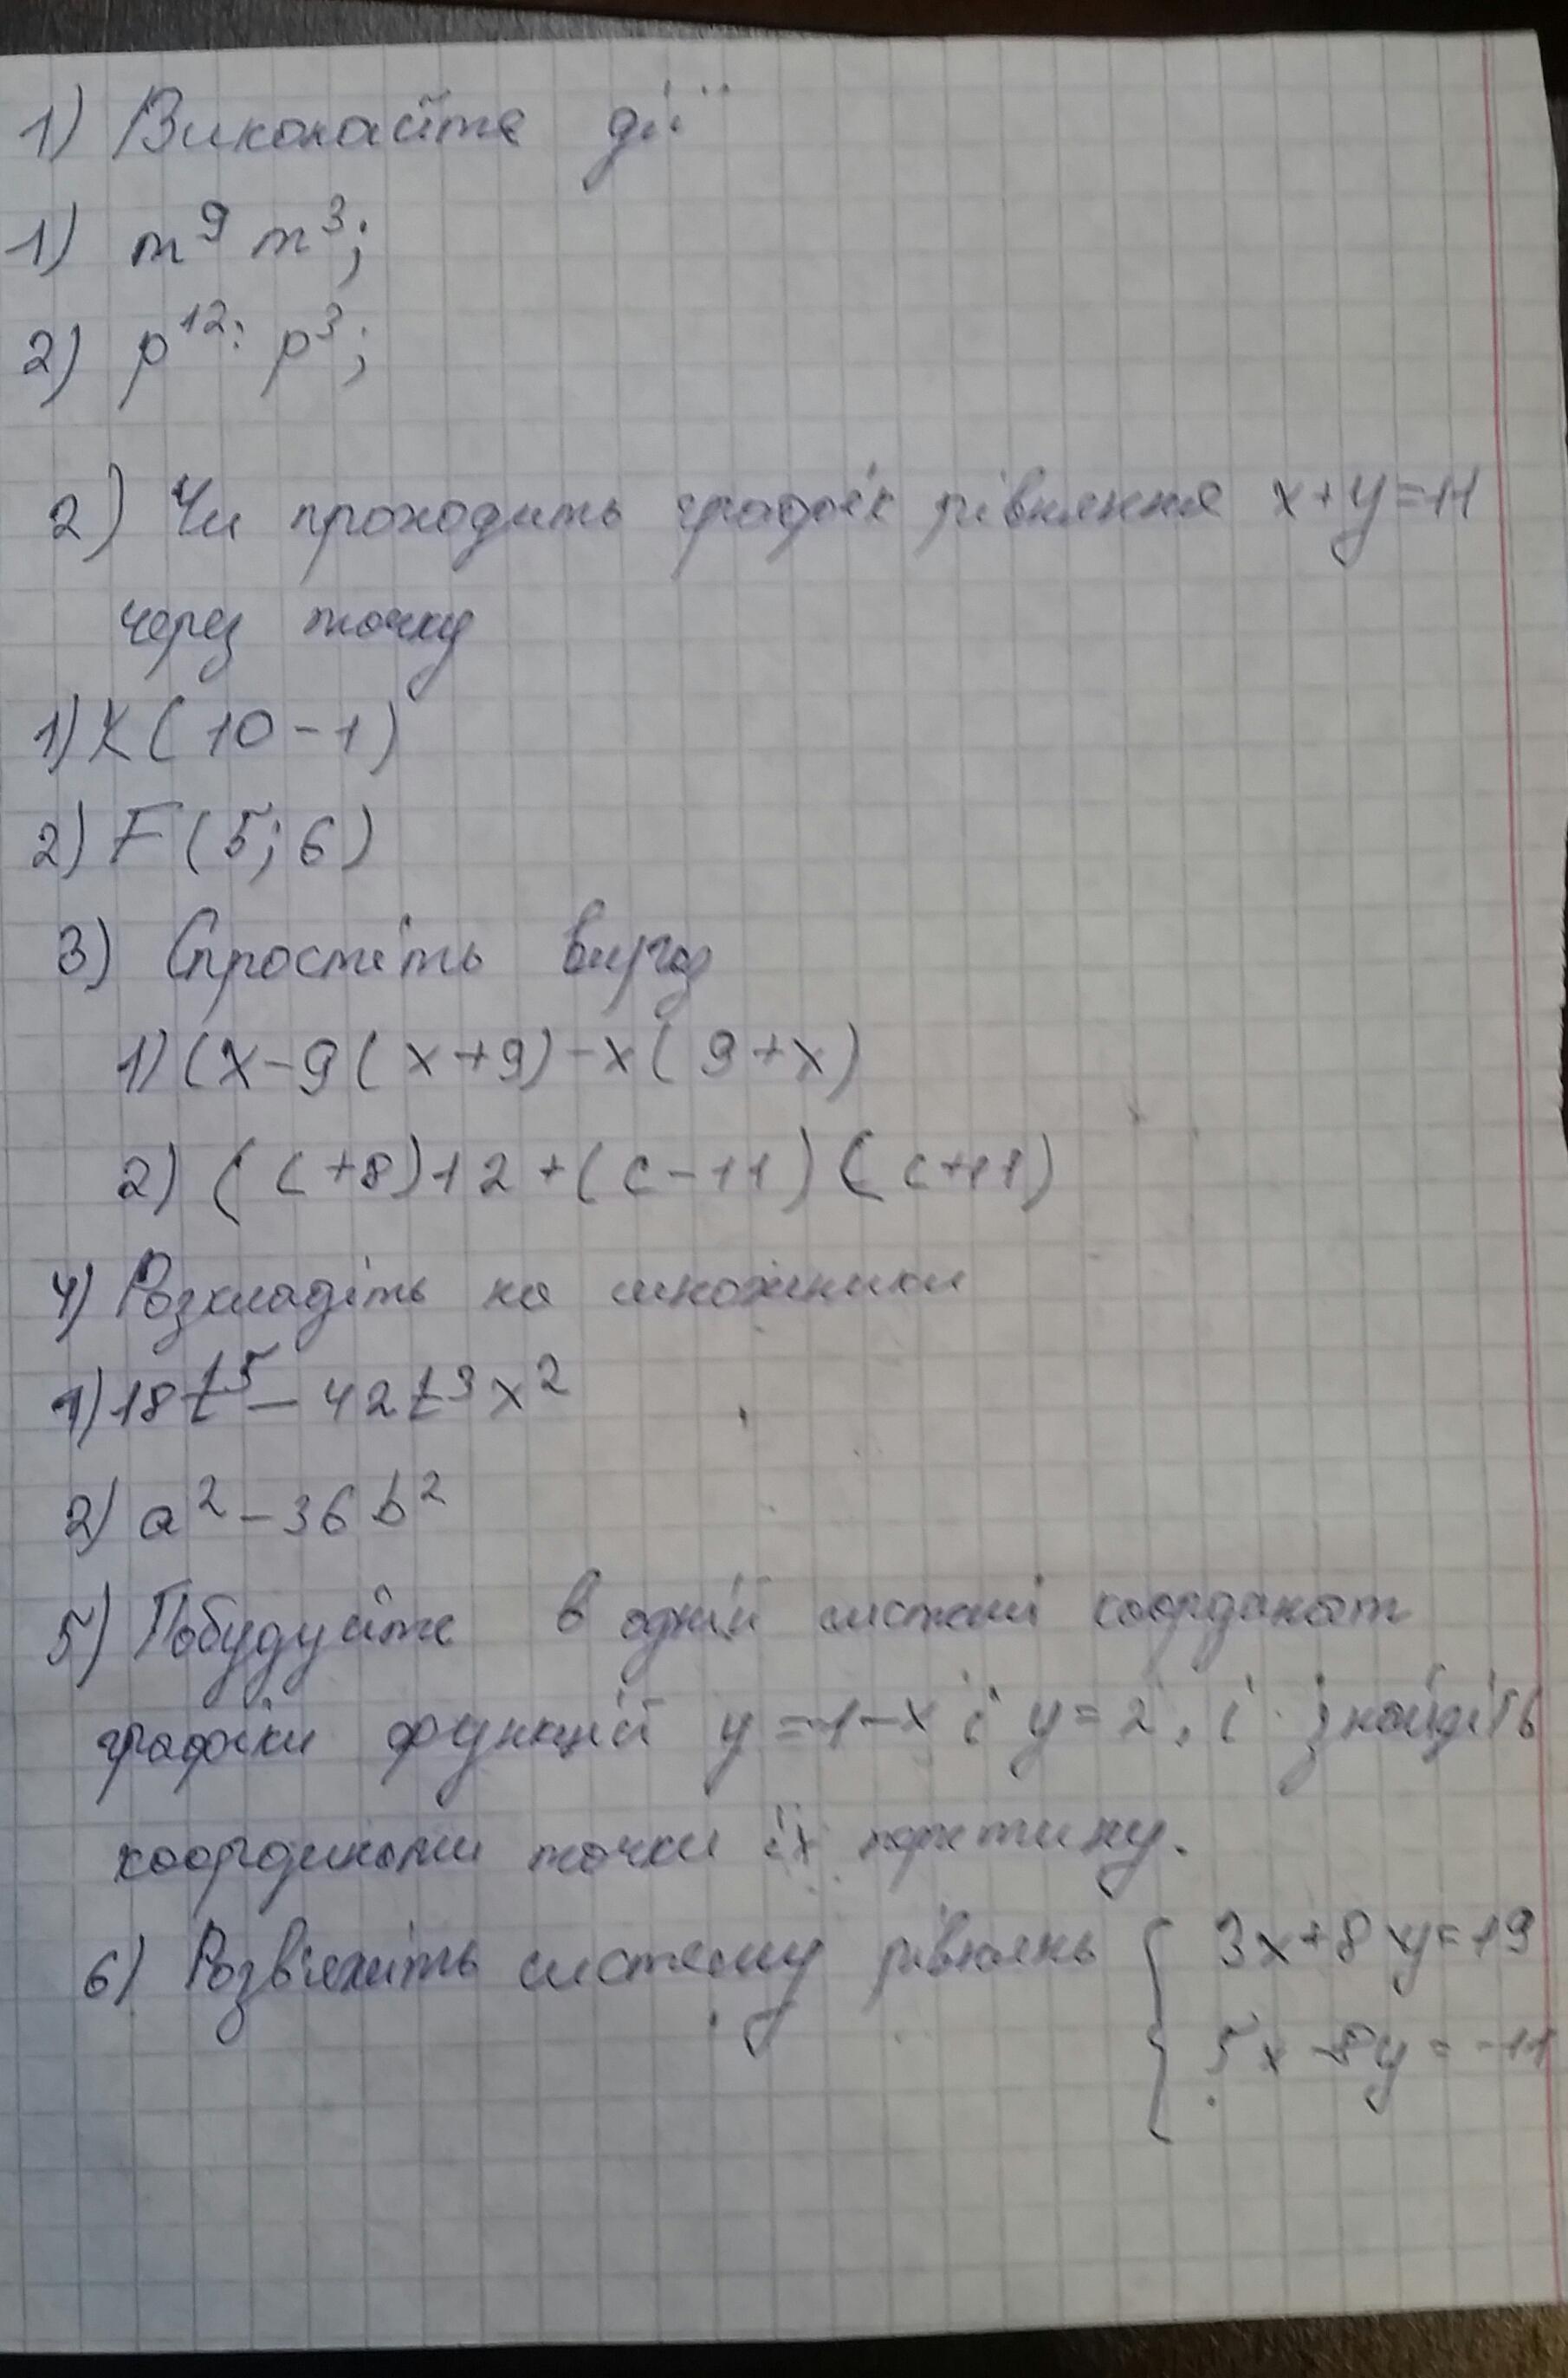 1) Виконайте дії
1) m⁹ m³;
2) p¹²: p³;
2) Чи проходить графік рівняння x+y=11
через точку
1) K(10-1)
2) F(5;6)
3) Спростіть вираз
1) (x-9(x+9)-x(9+x)
2) (c+8)12+(c-11)(c+11)
4) Розкладіть на множники
1) 18t⁵-42t³x²
2) a²-36b²
5) Побудуйте в одній системі координат
графіки функцій y=-1-x і y=2, і знайдіть
координати точки їх перетину.
6) Розв'яжіть систему рівнянь { 3x+8y=19
5x-8y=-11